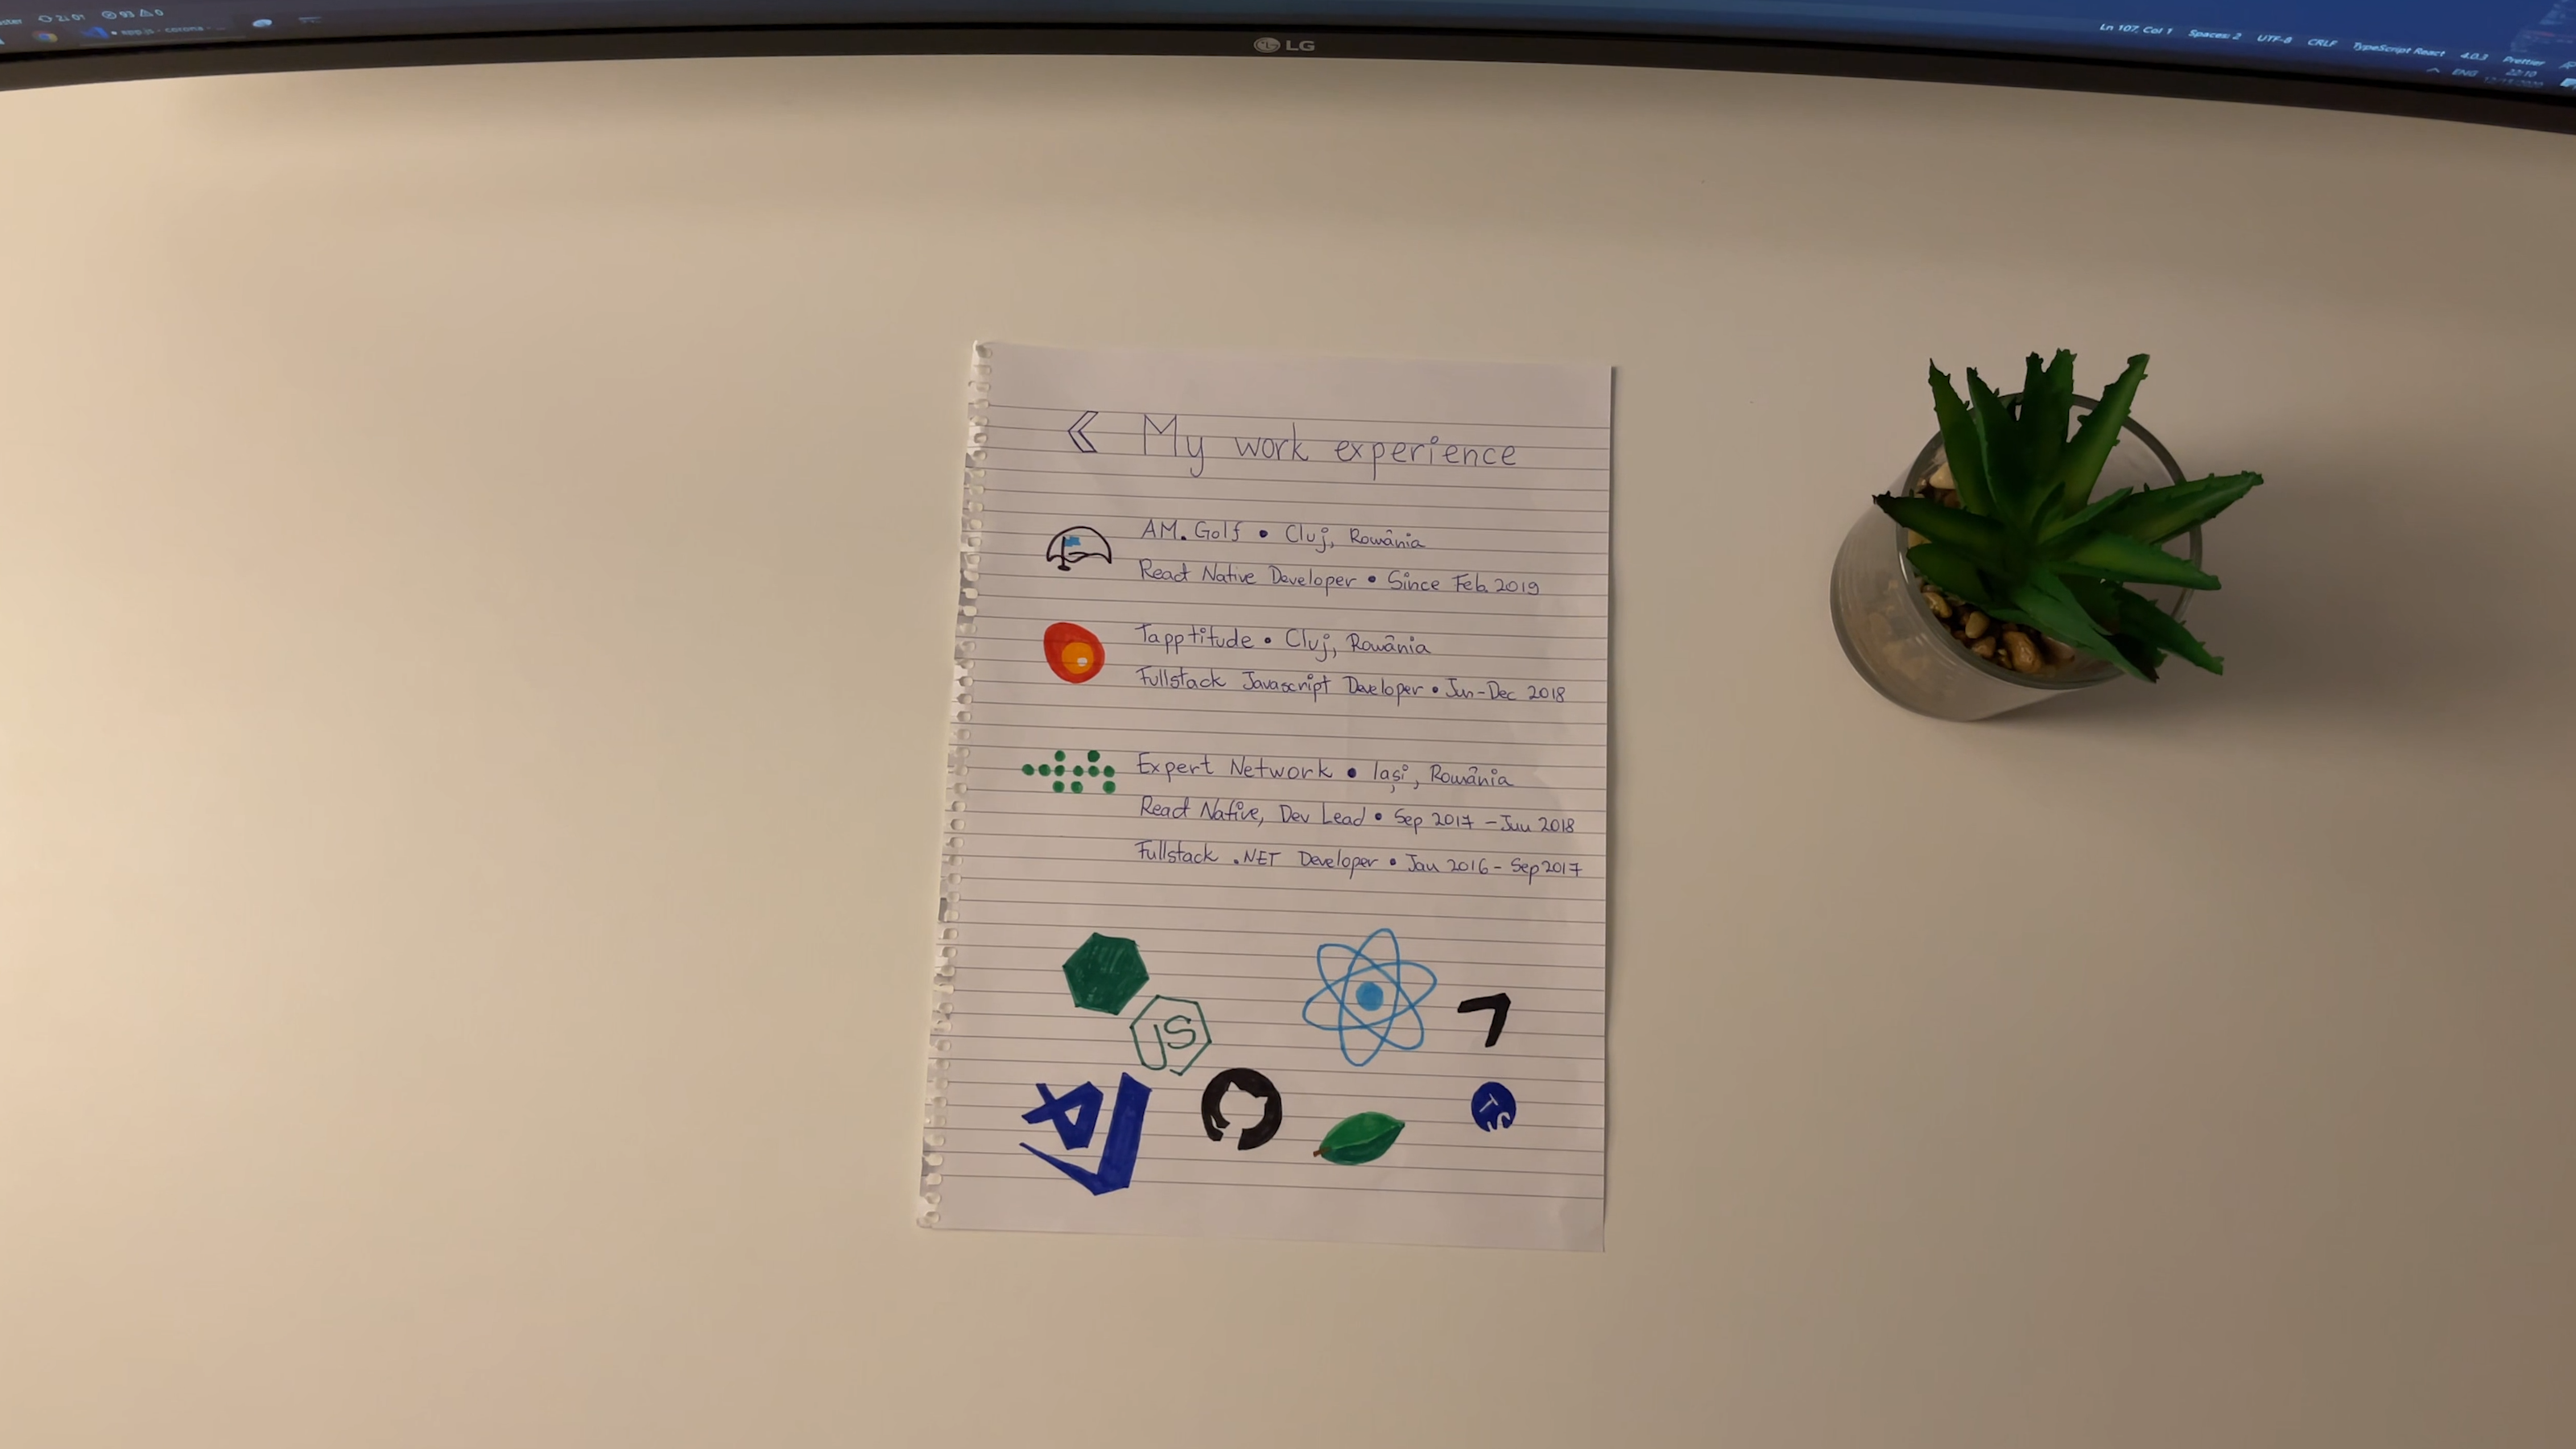 app.js - corona - ...
LG
Ln 107, Col 1 Spaces: 2 UTF-8 CRLF TypeScript React 4.0.3 Prettier
ENG 22:10
My work experience
AM. Golf • Cluj, România
React Native Developer • Since Feb. 2019
Tapptitude • Cluj, România
Fullstack Javascript Developer • Jun-Dec 2018
Expert Network • Iași, România
React Native, Dev Lead • Sep 2017 - Jun 2018
Fullstack .NET Developer • Jan 2016 - Sep 2017
JS
TS